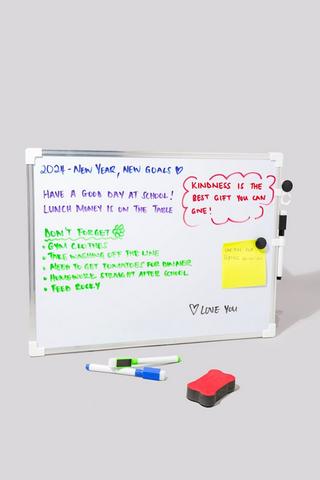 2024 - NEW YEAR, NEW GOALS ♡
HAVE A GOOD DAY AT SCHOOL!
LUNCH MONEY IS ON THE TABLE
KINDNESS IS THE
BEST GIFT YOU CAN
GIVE!
DON'T FORGET
• GYM CLOTHES
• TAKE WASHING OFF THE LINE
• NEED TO GET TOMATOES FOR DINNER
• HOMEWORK STRAIGHT AFTER SCHOOL
• FEED ROCKY
♡ LOVE YOU